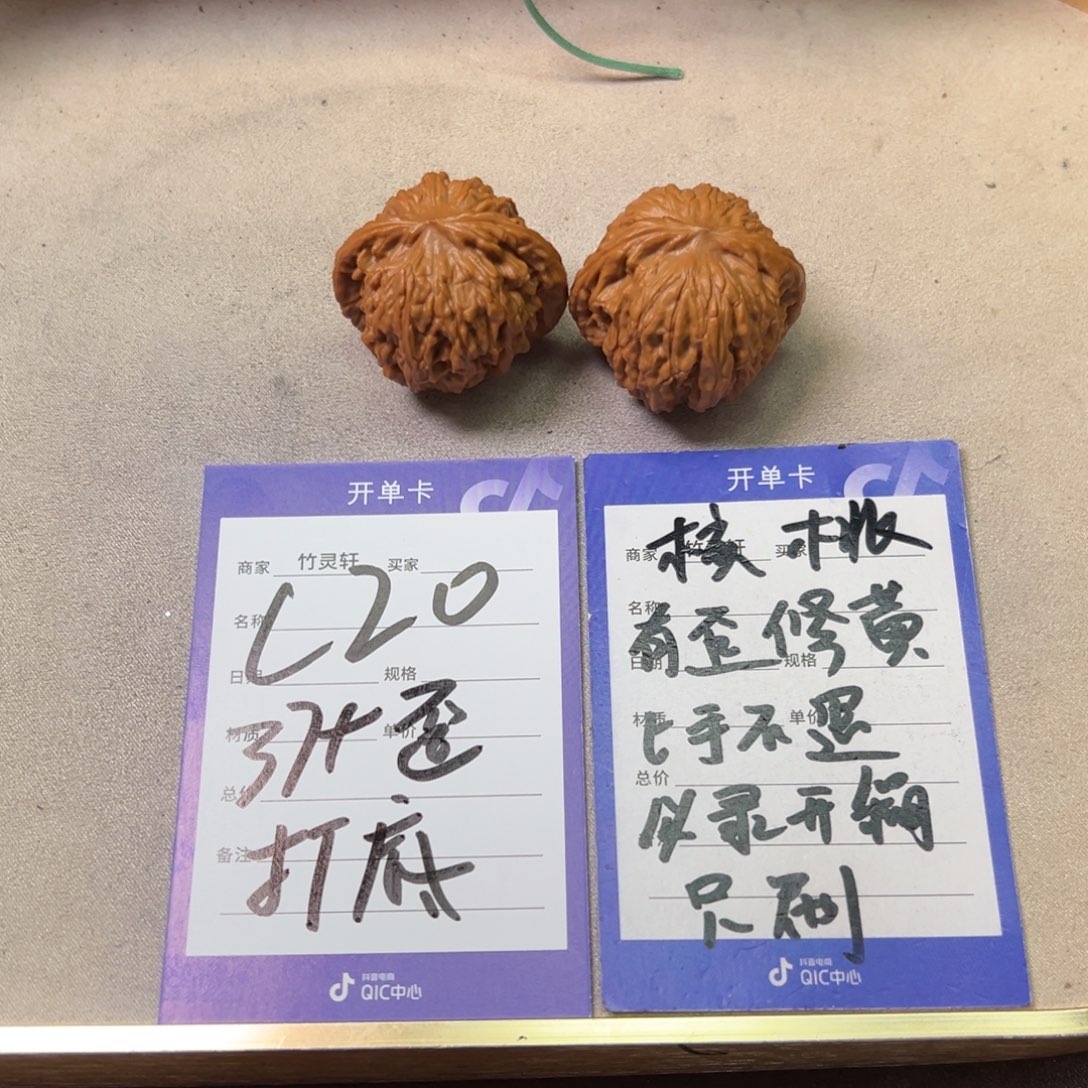 开单卡
商家 竹灵轩 买家
名称
L20
日期 规格
材质 单价
37+ 歪
总价
备注
打底
抖音电商
QIC中心
开单卡
核桃
商家 竹灵轩 买家
名称
有歪修黄
日期 规格
材质 单价
上手不退
总价
必录开箱
只刷
抖音电商
QIC中心